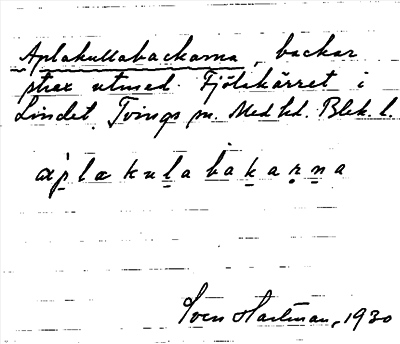 Aplakullabackarna, backar
strax utmed Fjölakärret i
Lindet, Tvings sn. Medhd. Blek. l.
aplakulabakarna
Sven Hartman, 1930